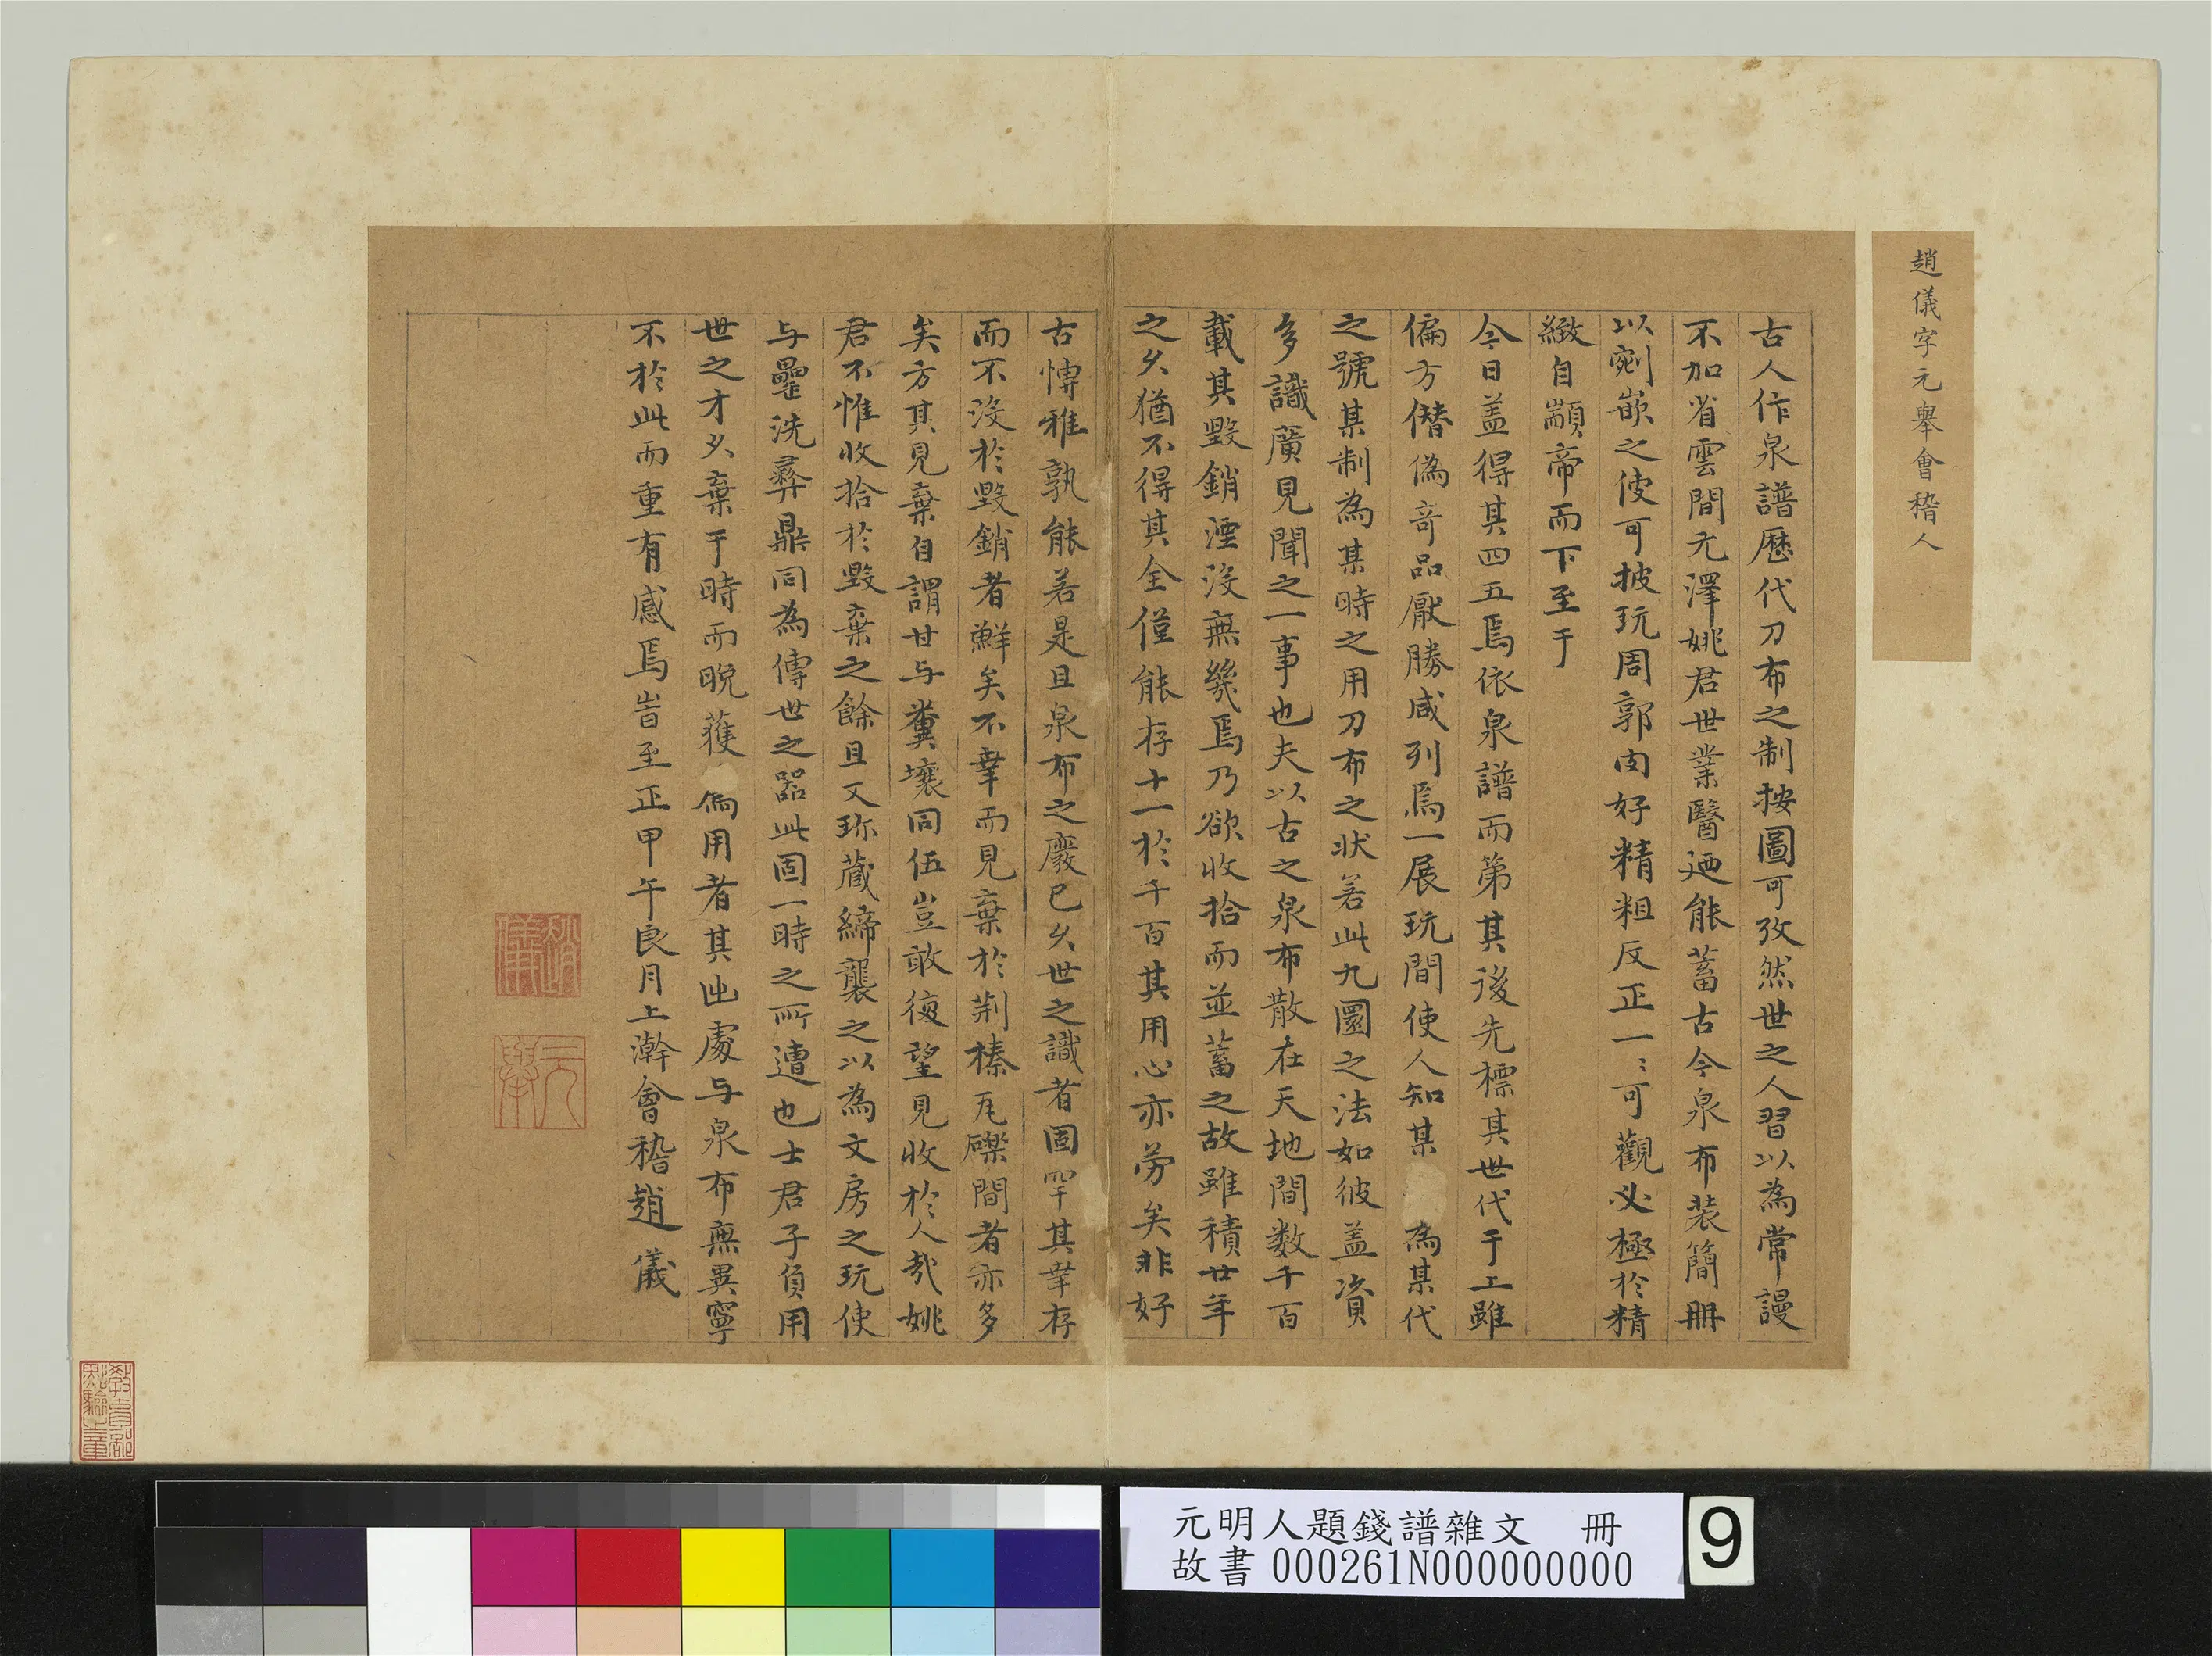 趙儀字元舉會稽人
古人作泉譜歷代刀布之制按圖可攷然世之人習以為常謾
不加省雲間元澤姚君世業醫廼能蓄古今泉布裝簡冊
以剜嵌之使可披玩周郭肉好精粗反正一〻可觀必極於精
緻自顓帝而下至于
今日盖得其四五焉依泉譜而第其後先標其世代于上雖
偏方僭偽奇品厭勝咸列焉一展玩間使人知某為某代
之號某制為某時之用刀布之狀若此九圜之法如彼盖資
多識廣見聞之一事也夫以古之泉布散在天地間数千百
載其毀銷湮沒無幾焉乃欲收拾而並蓄之故雖積廿年
之久猶不得其全僅能存十一於千百其用心亦勞矣非好
古慱雅孰能若是且泉布之廢已久世之識者固罕其幸存
而不沒於毀銷者鮮矣不幸而見棄於荆榛瓦礫間者亦多
矣方其見棄自謂甘与糞壤同伍豈敢復望見收於人哉姚
君不惟收拾於毀棄之餘且又珎藏締襲之以為文房之玩使
与罍洗彛鼎同為傳世之器此固一時之所遭也士君子負用
世之才久棄于時而晚獲為用者其出處与泉布無異寧
不於此而重有感焉旹至正甲午良月上澣會稽趙儀
趙儀
元舉
教育部點驗之章
元明人題錢譜雜文 冊
故書000261N000000000
9